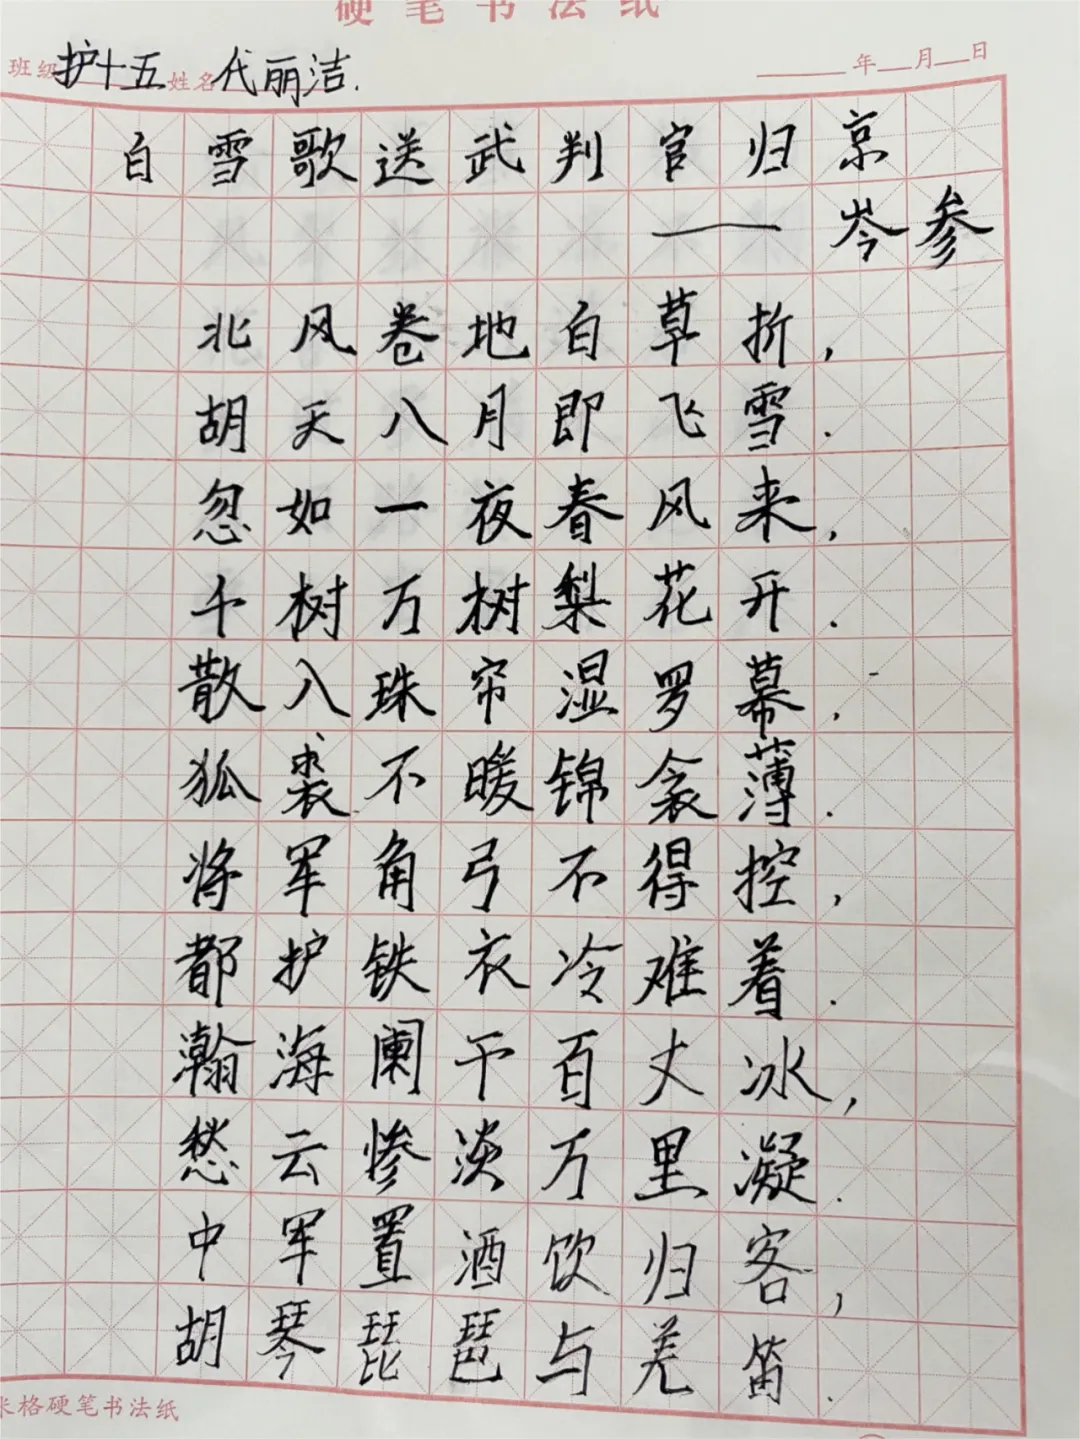 硬笔书法纸
班级 护十五 姓名 代丽洁.
年 月 日
白雪歌送武判官归京
——岑参
北风卷地白草折,
胡天八月即飞雪.
忽如一夜春风来,
千树万树梨花开.
散入珠帘湿罗幕,
狐裘不暖锦衾薄.
将军角弓不得控,
都护铁衣冷难着.
瀚海阑干百丈冰,
愁云惨淡万里凝.
中军置酒饮归客,
胡琴琵琶与羌笛.
米格硬笔书法纸